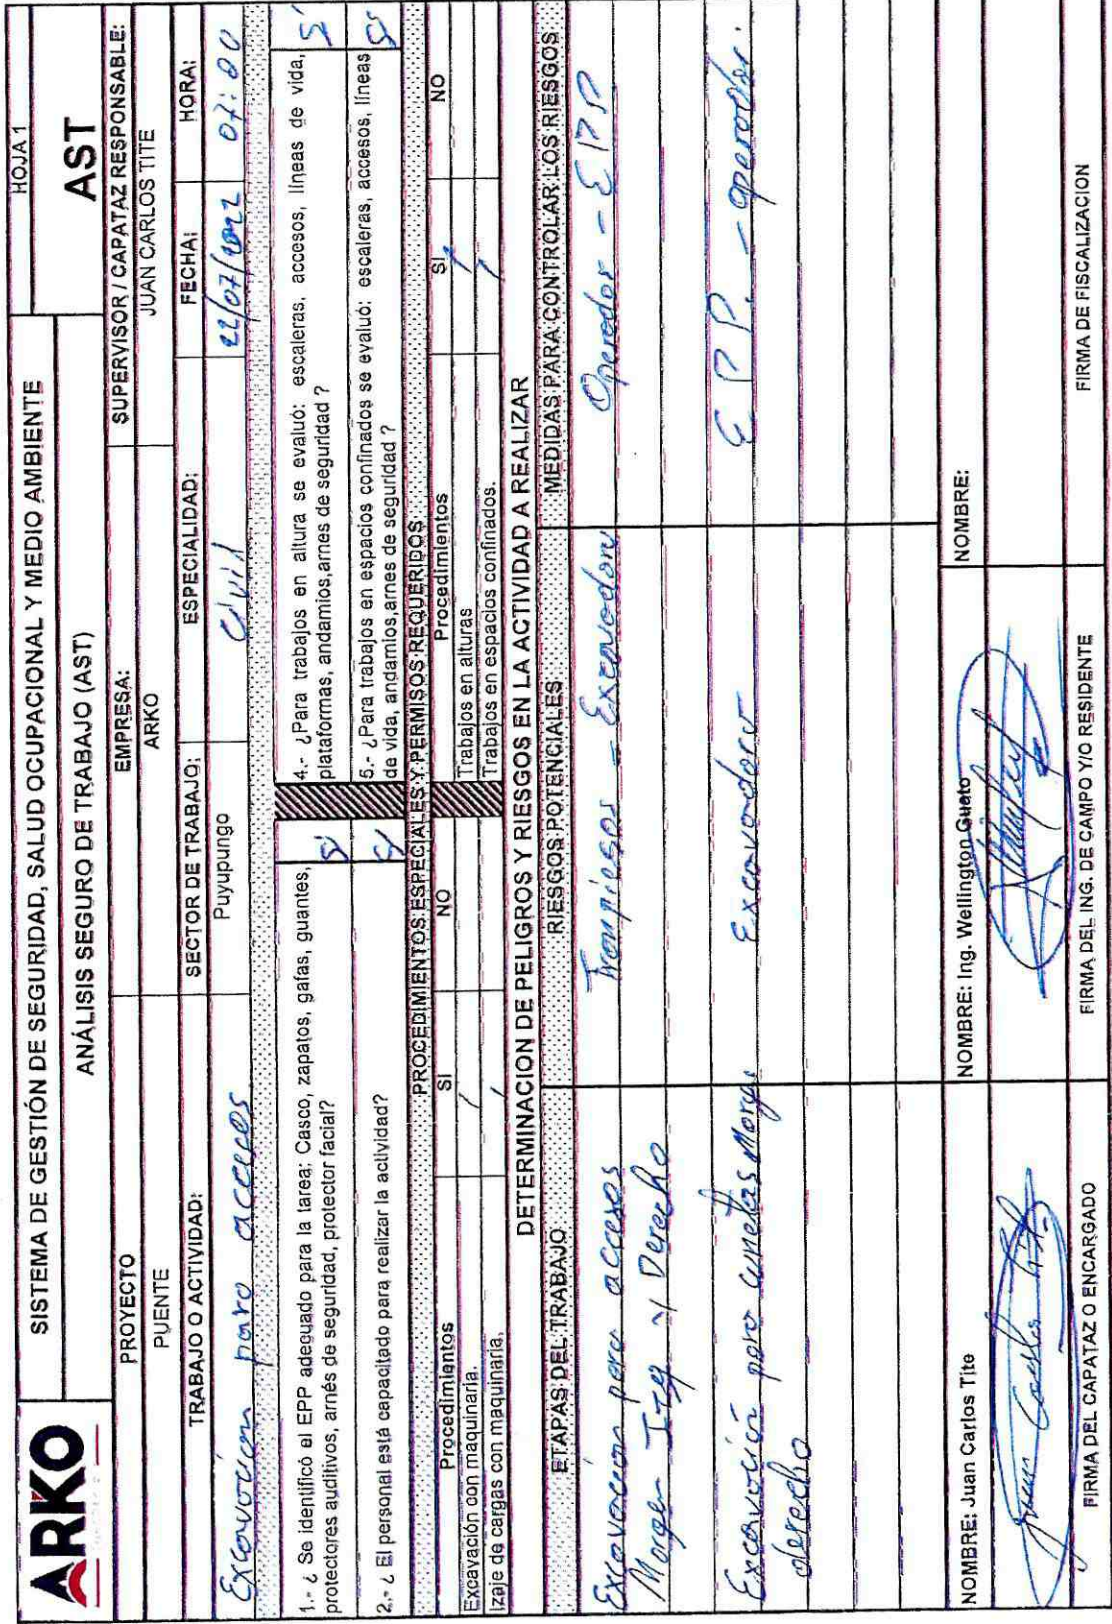 ARKO
SISTEMA DE GESTIÓN DE SEGURIDAD, SALUD OCUPACIONAL Y MEDIO AMBIENTE
HOJA 1
ANÁLISIS SEGURO DE TRABAJO (AST)
AST
PROYECTO
EMPRESA:
SUPERVISOR / CAPATAZ RESPONSABLE:
PUENTE
ARKO
JUAN CARLOS TITE
TRABAJO O ACTIVIDAD:
SECTOR DE TRABAJO:
ESPECIALIDAD:
FECHA:
HORA:
Excavación para acceces
Puyupungo
Civil
22/07/2022
07:00
1.- ¿ Se identificó el EPP adecuado para la tarea: Casco, zapatos, gafas, guantes,
protectores auditivos, arnés de seguridad, protector facial?
Si
4.- ¿Para trabajos en altura se evaluó: escaleras, accesos, líneas de vida,
plataformas, andamios,arnes de seguridad ?
Si
2.- ¿ El personal está capacitado para realizar la actividad?
Si
5.- ¿Para trabajos en espacios confinados se evaluó: escaleras, accesos, líneas
de vida, andamios,arnes de seguridad ?
Si
PROCEDIMIENTOS ESPECIALES Y PERMISOS REQUERIDOS
Procedimientos
SI
NO
Procedimientos
SI
NO
Excavación con maquinaria.
/
Trabajos en alturas
/
Izaje de cargas con maquinaria.
/
Trabajos en espacios confinados.
/
DETERMINACION DE PELIGROS Y RIESGOS EN LA ACTIVIDAD A REALIZAR
ETAPAS DEL TRABAJO
RIESGOS POTENCIALES
MEDIDAS PARA CONTROLAR LOS RIESGOS
Excavacion para accesos
Trompiesos - Excavadora
Operador - EPP
Margen Izq y Derecho
Excavación para cunetas Margen
Excavadora
E.P.P. - operador.
derecho
NOMBRE: Juan Carlos Tite
NOMBRE: Ing. Wellington Guato
NOMBRE:
Juan Carlos Tite
FIRMA DEL CAPATAZ O ENCARGADO
FIRMA DEL ING. DE CAMPO Y/O RESIDENTE
FIRMA DE FISCALIZACION